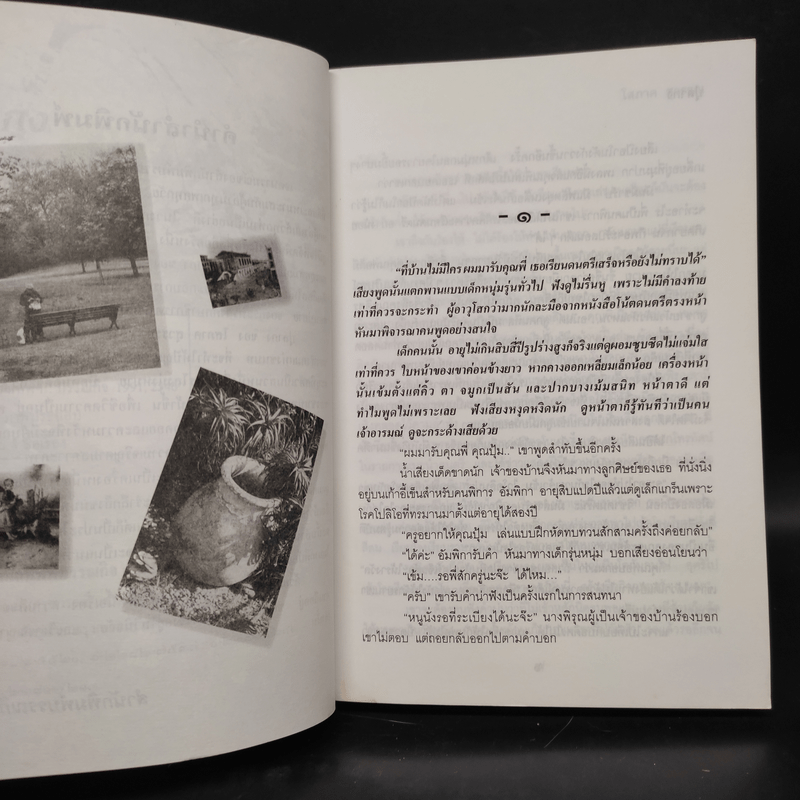 - ๑ -
“ที่บ้านไม่มีใคร ผมมารับคุณพี่ เธอเรียนดนตรีเสร็จหรือยังไม่ทราบได้”
เสียงพูดนั้นแตกพานแบบเด็กหนุ่มรุ่นทั่วไป ฟังดูไม่รื่นหู เพราะไม่มีคำลงท้าย
เท่าที่ควรจะกระทำ ผู้อาวุโสกว่ามากนักละมือจากหนังสือโน้ตดนตรีตรงหน้า
หันมาพิจารณาคนพูดอย่างสนใจ
เด็กคนนั้น อายุไม่เกินสิบสี่ปีรูปร่างสูงก็จริงแต่ดูผอมซูบซีดไม่แจ่มใส
เท่าที่ควร ใบหน้าของเขาค่อนข้างยาว หากคางออกเหลี่ยมเล็กน้อย เครื่องหน้า
นั้นเข้มตั้งแต่คิ้ว ตา จมูกเป็นสัน และปากบางเม้มสนิท หน้าตาดี แต่
ทำไมพูดไม่เพราะเลย ฟังเสียงหงุดหงิดนัก ดูหน้าตาก็รู้ทันทีว่าเป็นคน
เจ้าอารมณ์ ดูจะกระด้างเสียด้วย
“ผมมารับคุณพี่ คุณปุ้ม..” เขาพูดสำทับขึ้นอีกครั้ง
น้ำเสียงเด็ดขาดนัก เจ้าของบ้านจึงหันมาทางลูกศิษย์ของเธอ ที่นั่งนิ่ง
อยู่บนเก้าอี้เข็นสำหรับคนพิการ อัมพิกา อายุสิบแปดปีแล้วแต่ดูเล็กแกร็นเพราะ
โรคโปลิโอที่ทรมานมาตั้งแต่อายุได้สองปี
“ครูอยากให้คุณปุ้ม เล่นแบบฝึกหัดทบทวนสักสามครั้งถึงค่อยกลับ”
“ได้ค่ะ” อัมพิการับคำ หันมาทางเด็กรุ่นหนุ่ม บอกเสียงอ่อนโยนว่า
“เข้ม....รอพี่สักครู่นะจ๊ะ ได้ไหม...”
“ครับ” เขารับคำน่าฟังเป็นครั้งแรกในการสนทนา
“หนูนั่งรอที่ระเบียงได้นะจ๊ะ” นางพิรุณผู้เป็นเจ้าของบ้านร้องบอก
เขาไม่ตอบ แต่ถอยกลับออกไปตามคำบอก